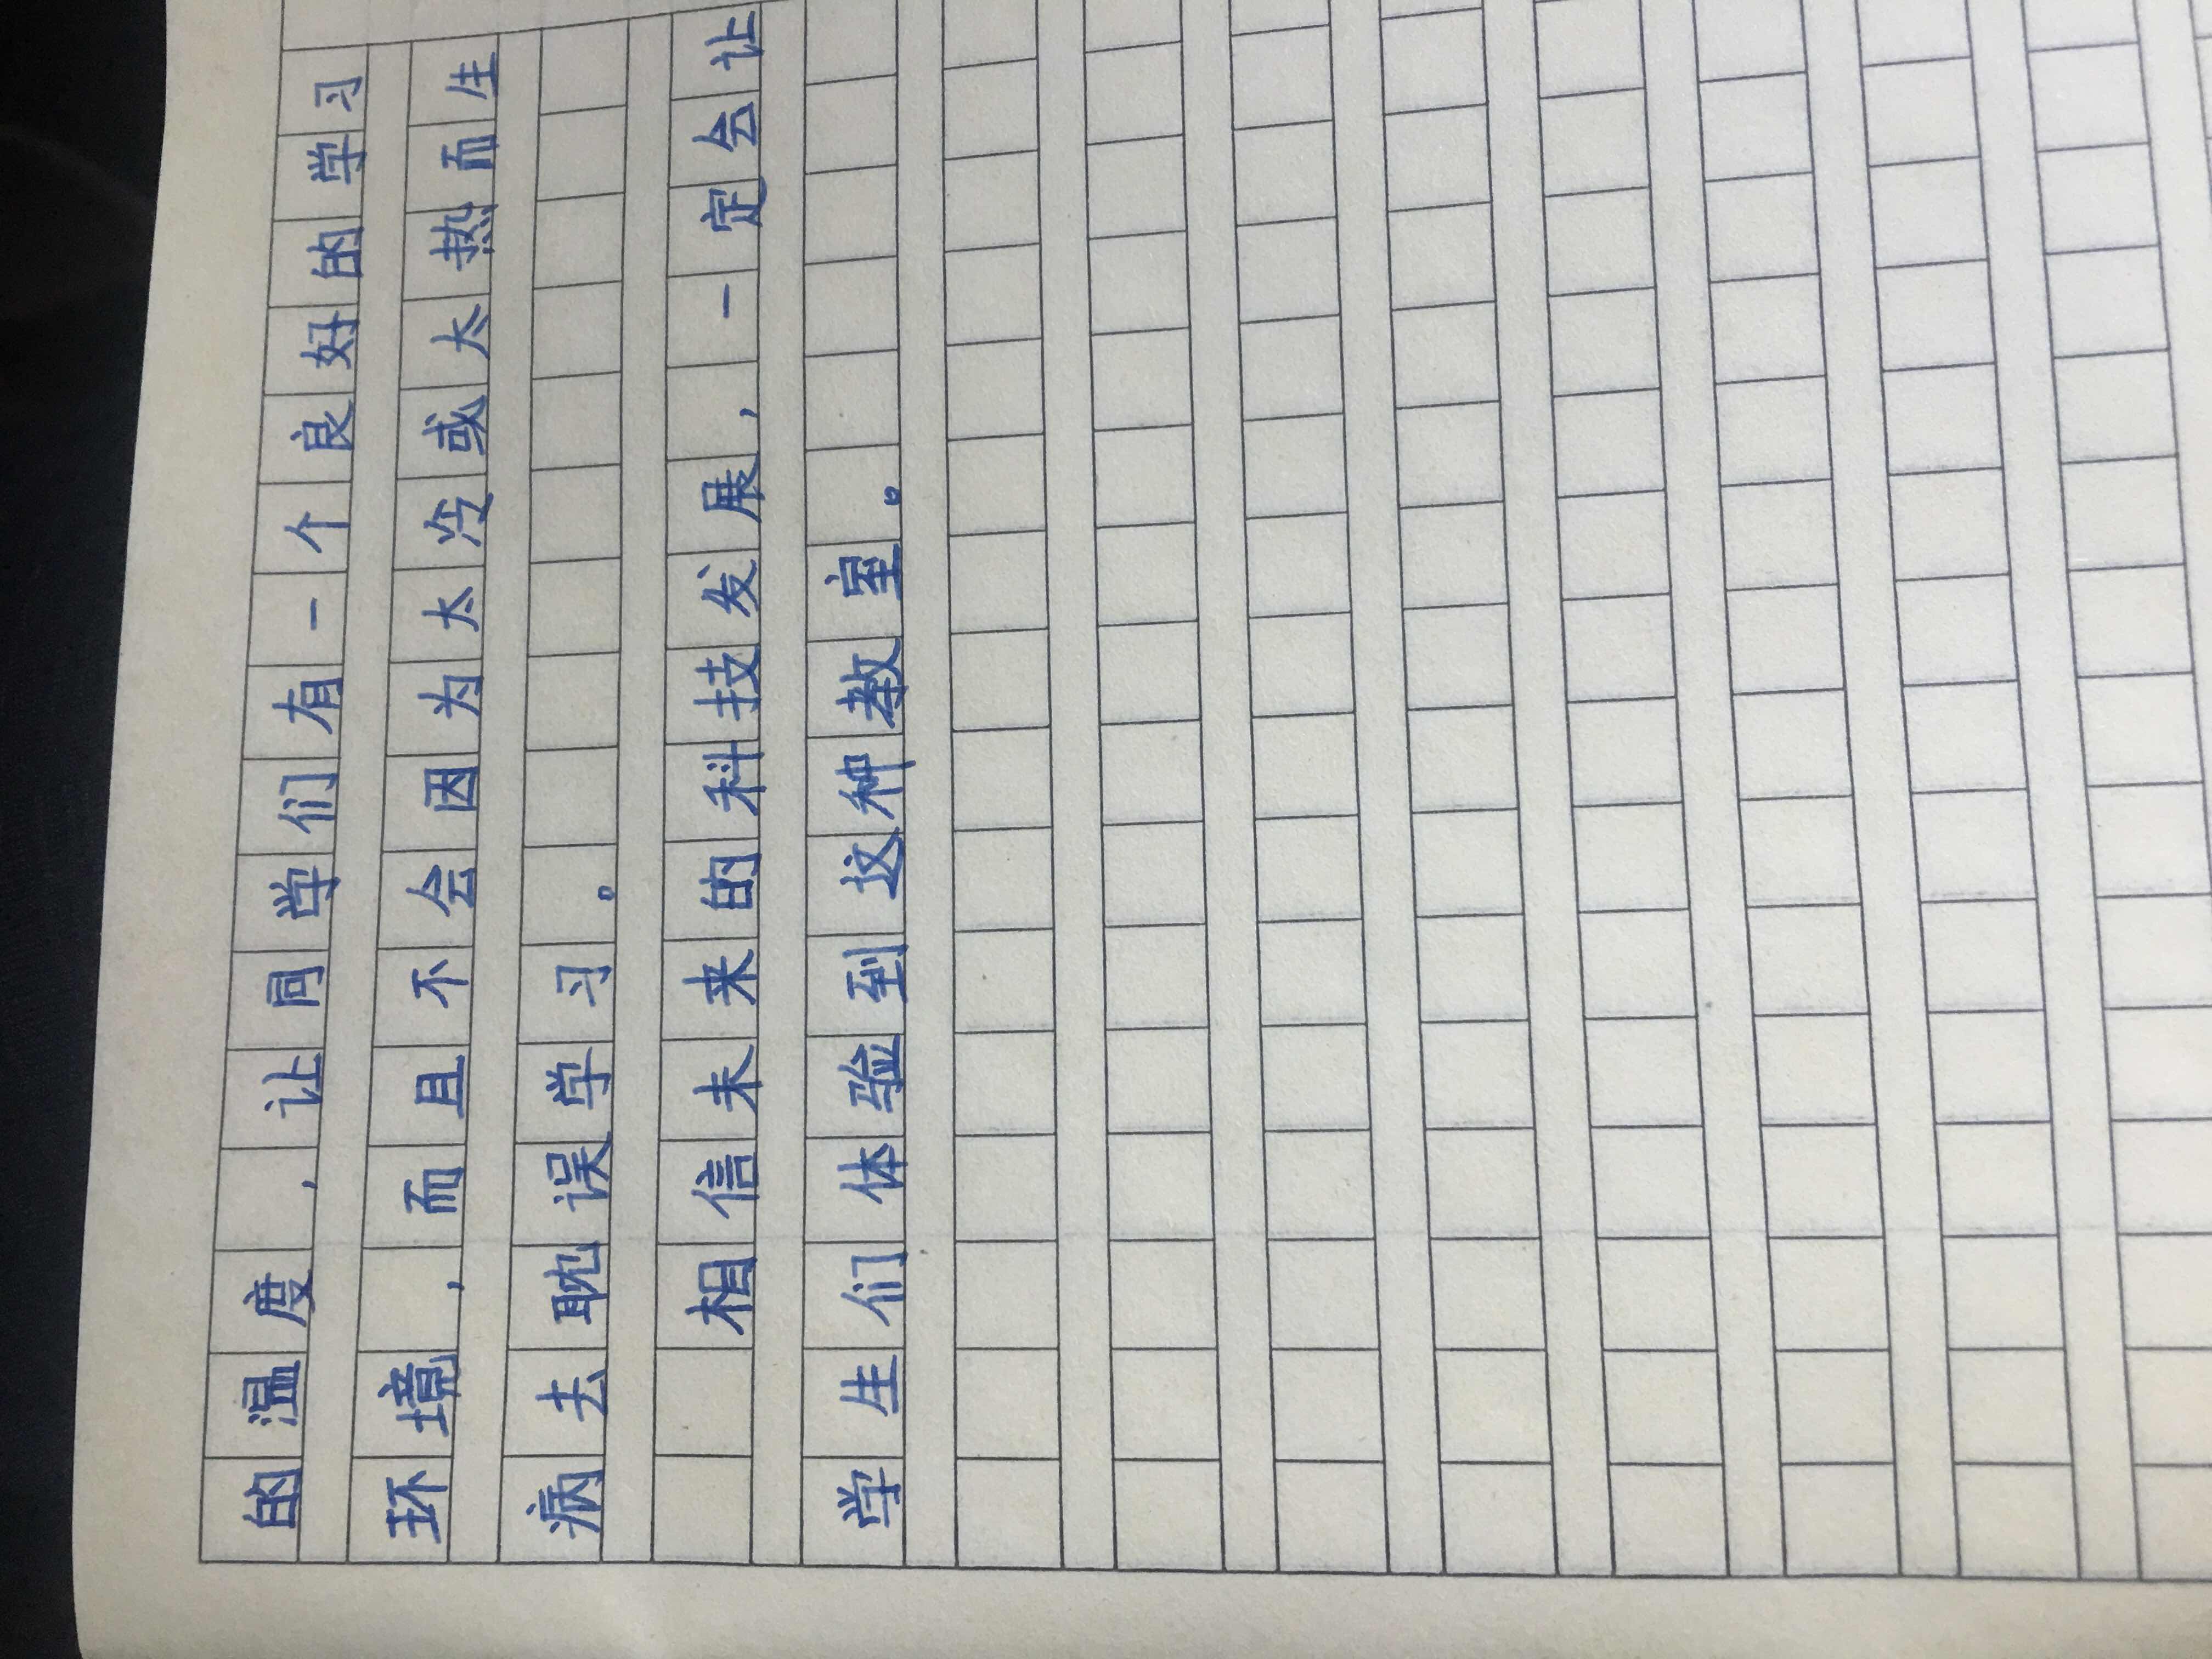 的温度，让同学们有一个良好的学习
环境，而且不会因为太冷或太热而生
病去耽误学习。
相信未来的科技发展，一定会让
学生们体验到这种教室。